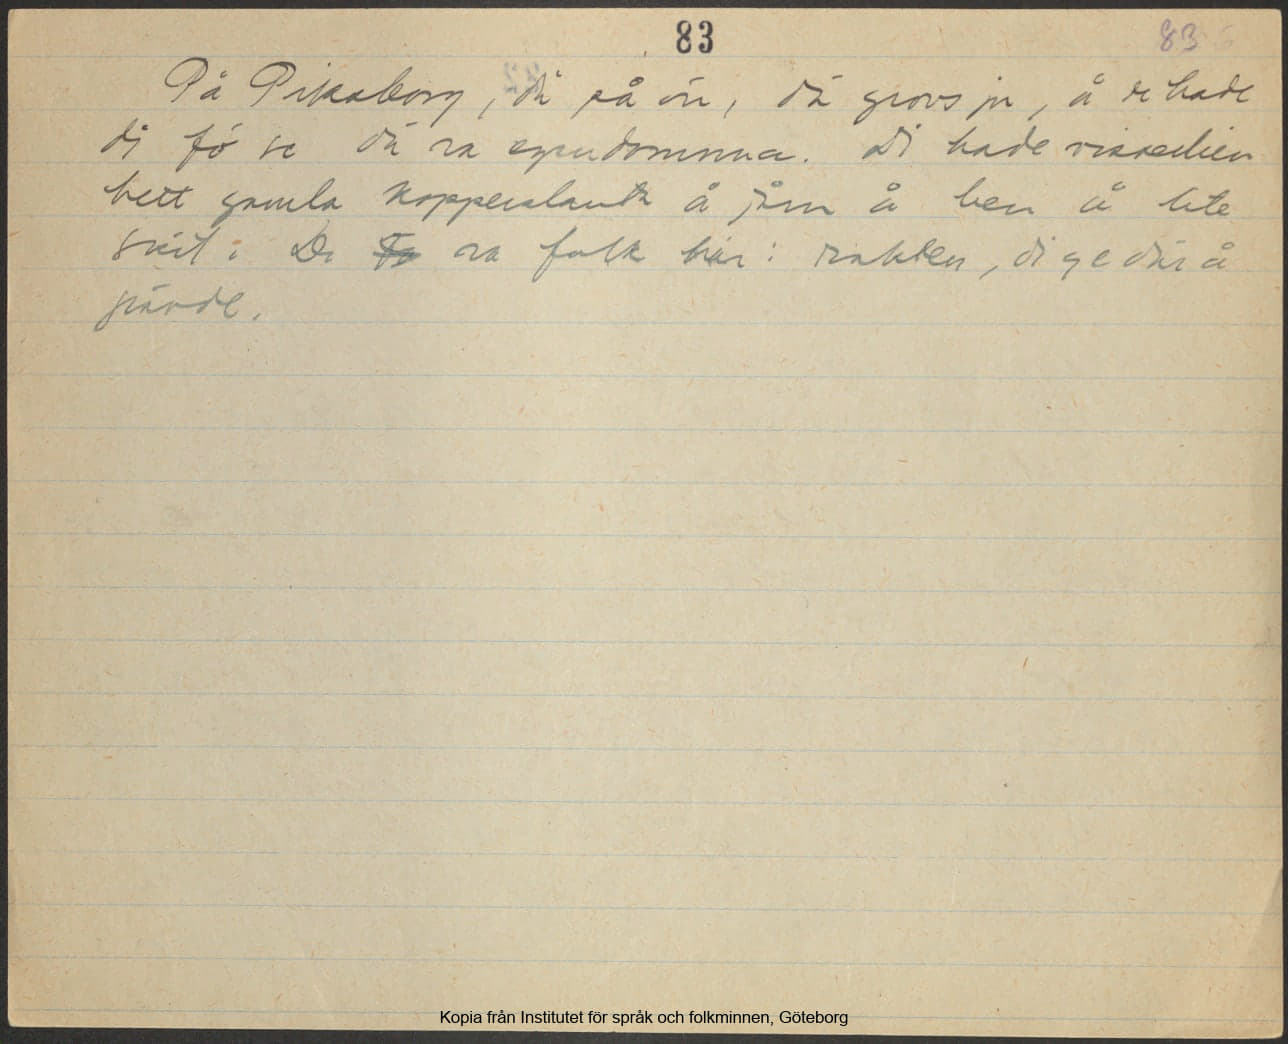 83 83
På Pikaborg, då på ön, dä grovs ju, å de hade
di fö se dä va egendommna. Di hade visserlien
hett gamla kopperslantr å järn å ben å lite
skit. De va folk här i trakten, di ge där å
grävde.
Kopia från Institutet för språk och folkminnen, Göteborg